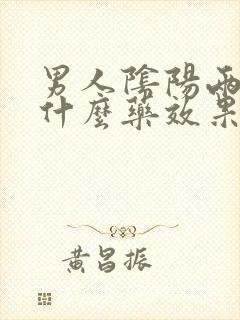 男人陰陽兩
什麼藥效果
黃昌振